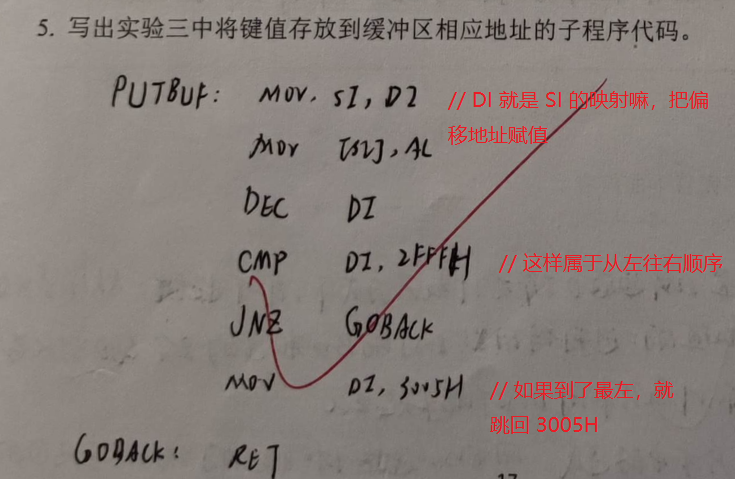 5. 写出实验三中将键值存放到缓冲区相应地址的子程序代码。
PUTBUF: MOV. SI, DI // DI 就是 SI 的映射嘛，把偏
移地址赋值
MOV [SI], AL
DEC DI
CMP DI, 2FFFH // 这样属于从左往右顺序
JNZ GOBACK
MOV DI, 3005H // 如果到了最左，就
跳回 3005H
GOBACK: RET
17